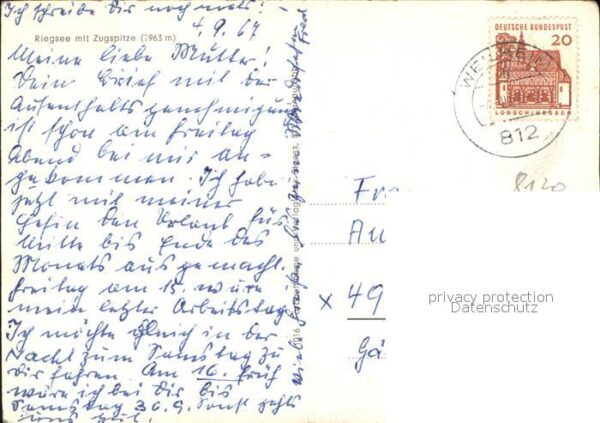 Ich schreibe Dir noch mals! –
4. 9. 67
Riegsee mit Zugspitze (2963 m)
Meine liebe Mutter!
Dein Brief mit der
Aufenthaltsgenehmigung
ist schon am Freitag
Abend bei mir an-
gekommen. Ich habe
jetzt mit meiner
Chefin den Urlaub für
Mitte bis Ende des
Monats ausgemacht.
Freitag am 15. wäre
mein letzter Arbeitstag.
Ich möchte gleich in der
Nacht zum Samstag zu
Dir fahren. Am 16. früh
wäre ich bei Dir bis
Samstag 30. 9. Sonst gehts
uns gut.
DEUTSCHE BUNDESPOST
20
LORSCH/HESSEN
WEILHEIM
812
8120
Fr
Au
x 49
Gä
privacy protection
Datenschutz